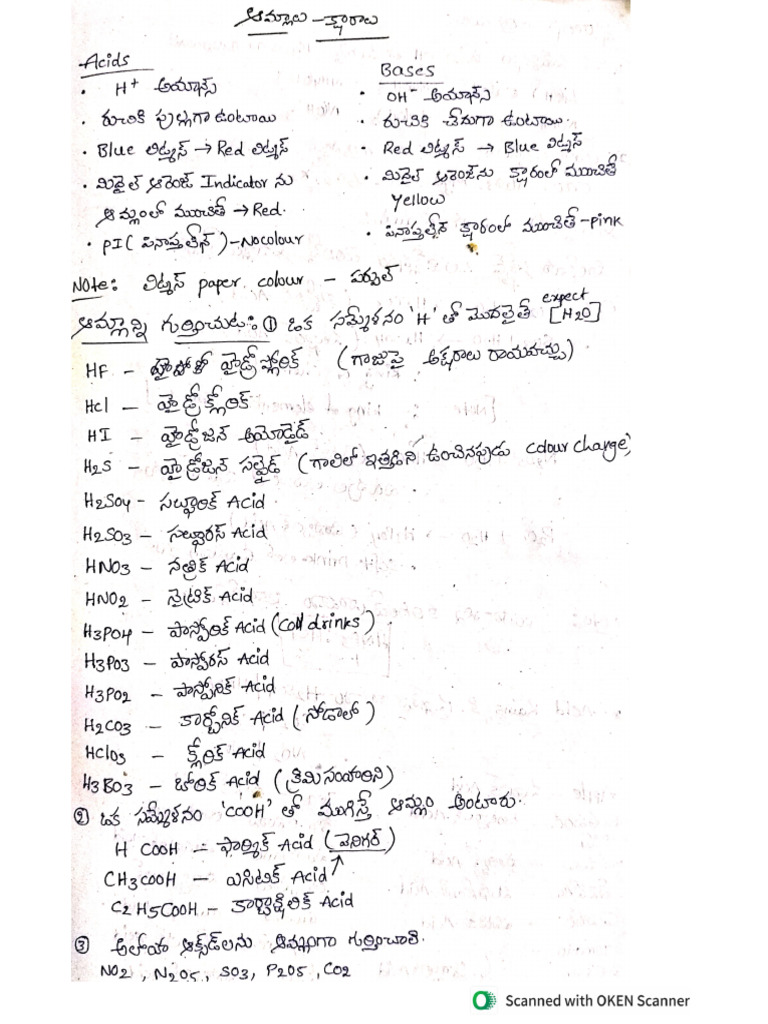 ఆమ్లాలు - క్షారాలు
Acids
• H+ అయాన్స్
• రుచికి పుల్లగా ఉంటాయి
• Blue లిట్మస్ → Red లిట్మస్
• మిథైల్ ఆరెంజ్ Indicator ను
ఆమ్లంలో ముంచితే → Red.
• PI ( పినాప్తలీన్ ) - Nocolour
Bases
• OH- అయాన్స్
• రుచికి చేదుగా ఉంటాయి.
• Red లిట్మస్ → Blue లిట్మస్
• మిథైల్ ఆరెంజ్‌ను క్షారంలో ముంచితే
Yellow
• పినాప్తలీన్ క్షారంలో ముంచితే - pink
Note: లిట్మస్ paper colour - పర్పుల్
ఆమ్లాన్ని గుర్తించుట: ① ఒక సమ్మేళనం 'H' తో మొదలైతే expect [H2O]
HF - హైడ్రోఫ్లోరిక్ (గాజుపై అక్షరాలు రాయవచ్చు)
Hcl - హైడ్రోక్లోరిక్
HI - హైడ్రోజన్ అయోడైడ్
H2S - హైడ్రోజన్ సల్ఫైడ్ (గాలిలో ఇత్తడిని ఉంచినపుడు colour change)
H2SO4 - సల్ఫ్యూరిక్ Acid
H2SO3 - సల్ఫ్యూరస్ Acid
HNO3 - నత్రిక్ Acid
HNO2 - నైట్రిక్ Acid
H3PO4 - పాస్పోరిక్ Acid (Coll drinks)
H3PO3 - పాస్పోరస్ Acid
H3PO2 - పాస్పోనిక్ Acid
H2CO3 - కార్బోనిక్ Acid ( సోడాలో )
HClO3 - క్లోరిక్ Acid
H3BO3 - బోరిక్ Acid (క్రిమిసంహారిని)
② ఒక సమ్మేళనం 'COOH' తో ముగిస్తే ఆమ్లం అంటారు.
H COOH - ఫార్మిక్ Acid (వెనిగర్)
CH3COOH - ఎసిటిక్ Acid ↑
C2H5COOH - కార్బాక్సిలిక్ Acid
③ అలోహ ఆక్సైడ్‌లను ఆమ్లంగా గుర్తించాలి.
NO2, N2O5, SO3, P2O5, CO2
Scanned with OKEN Scanner